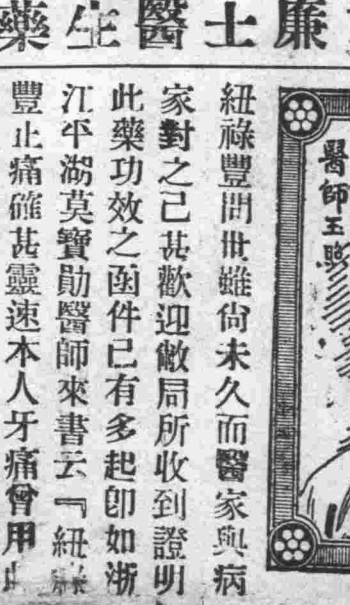 廉士醫生藥
醫師王
紐祿豐問世雖尙未久而醫家與病
家對之已甚歡迎敝局所收到證明
此藥功效之函件已有多起卽如浙
江平湖莫寶勛醫師來書云『紐祿
豐止痛確甚靈速本人牙痛曾用此